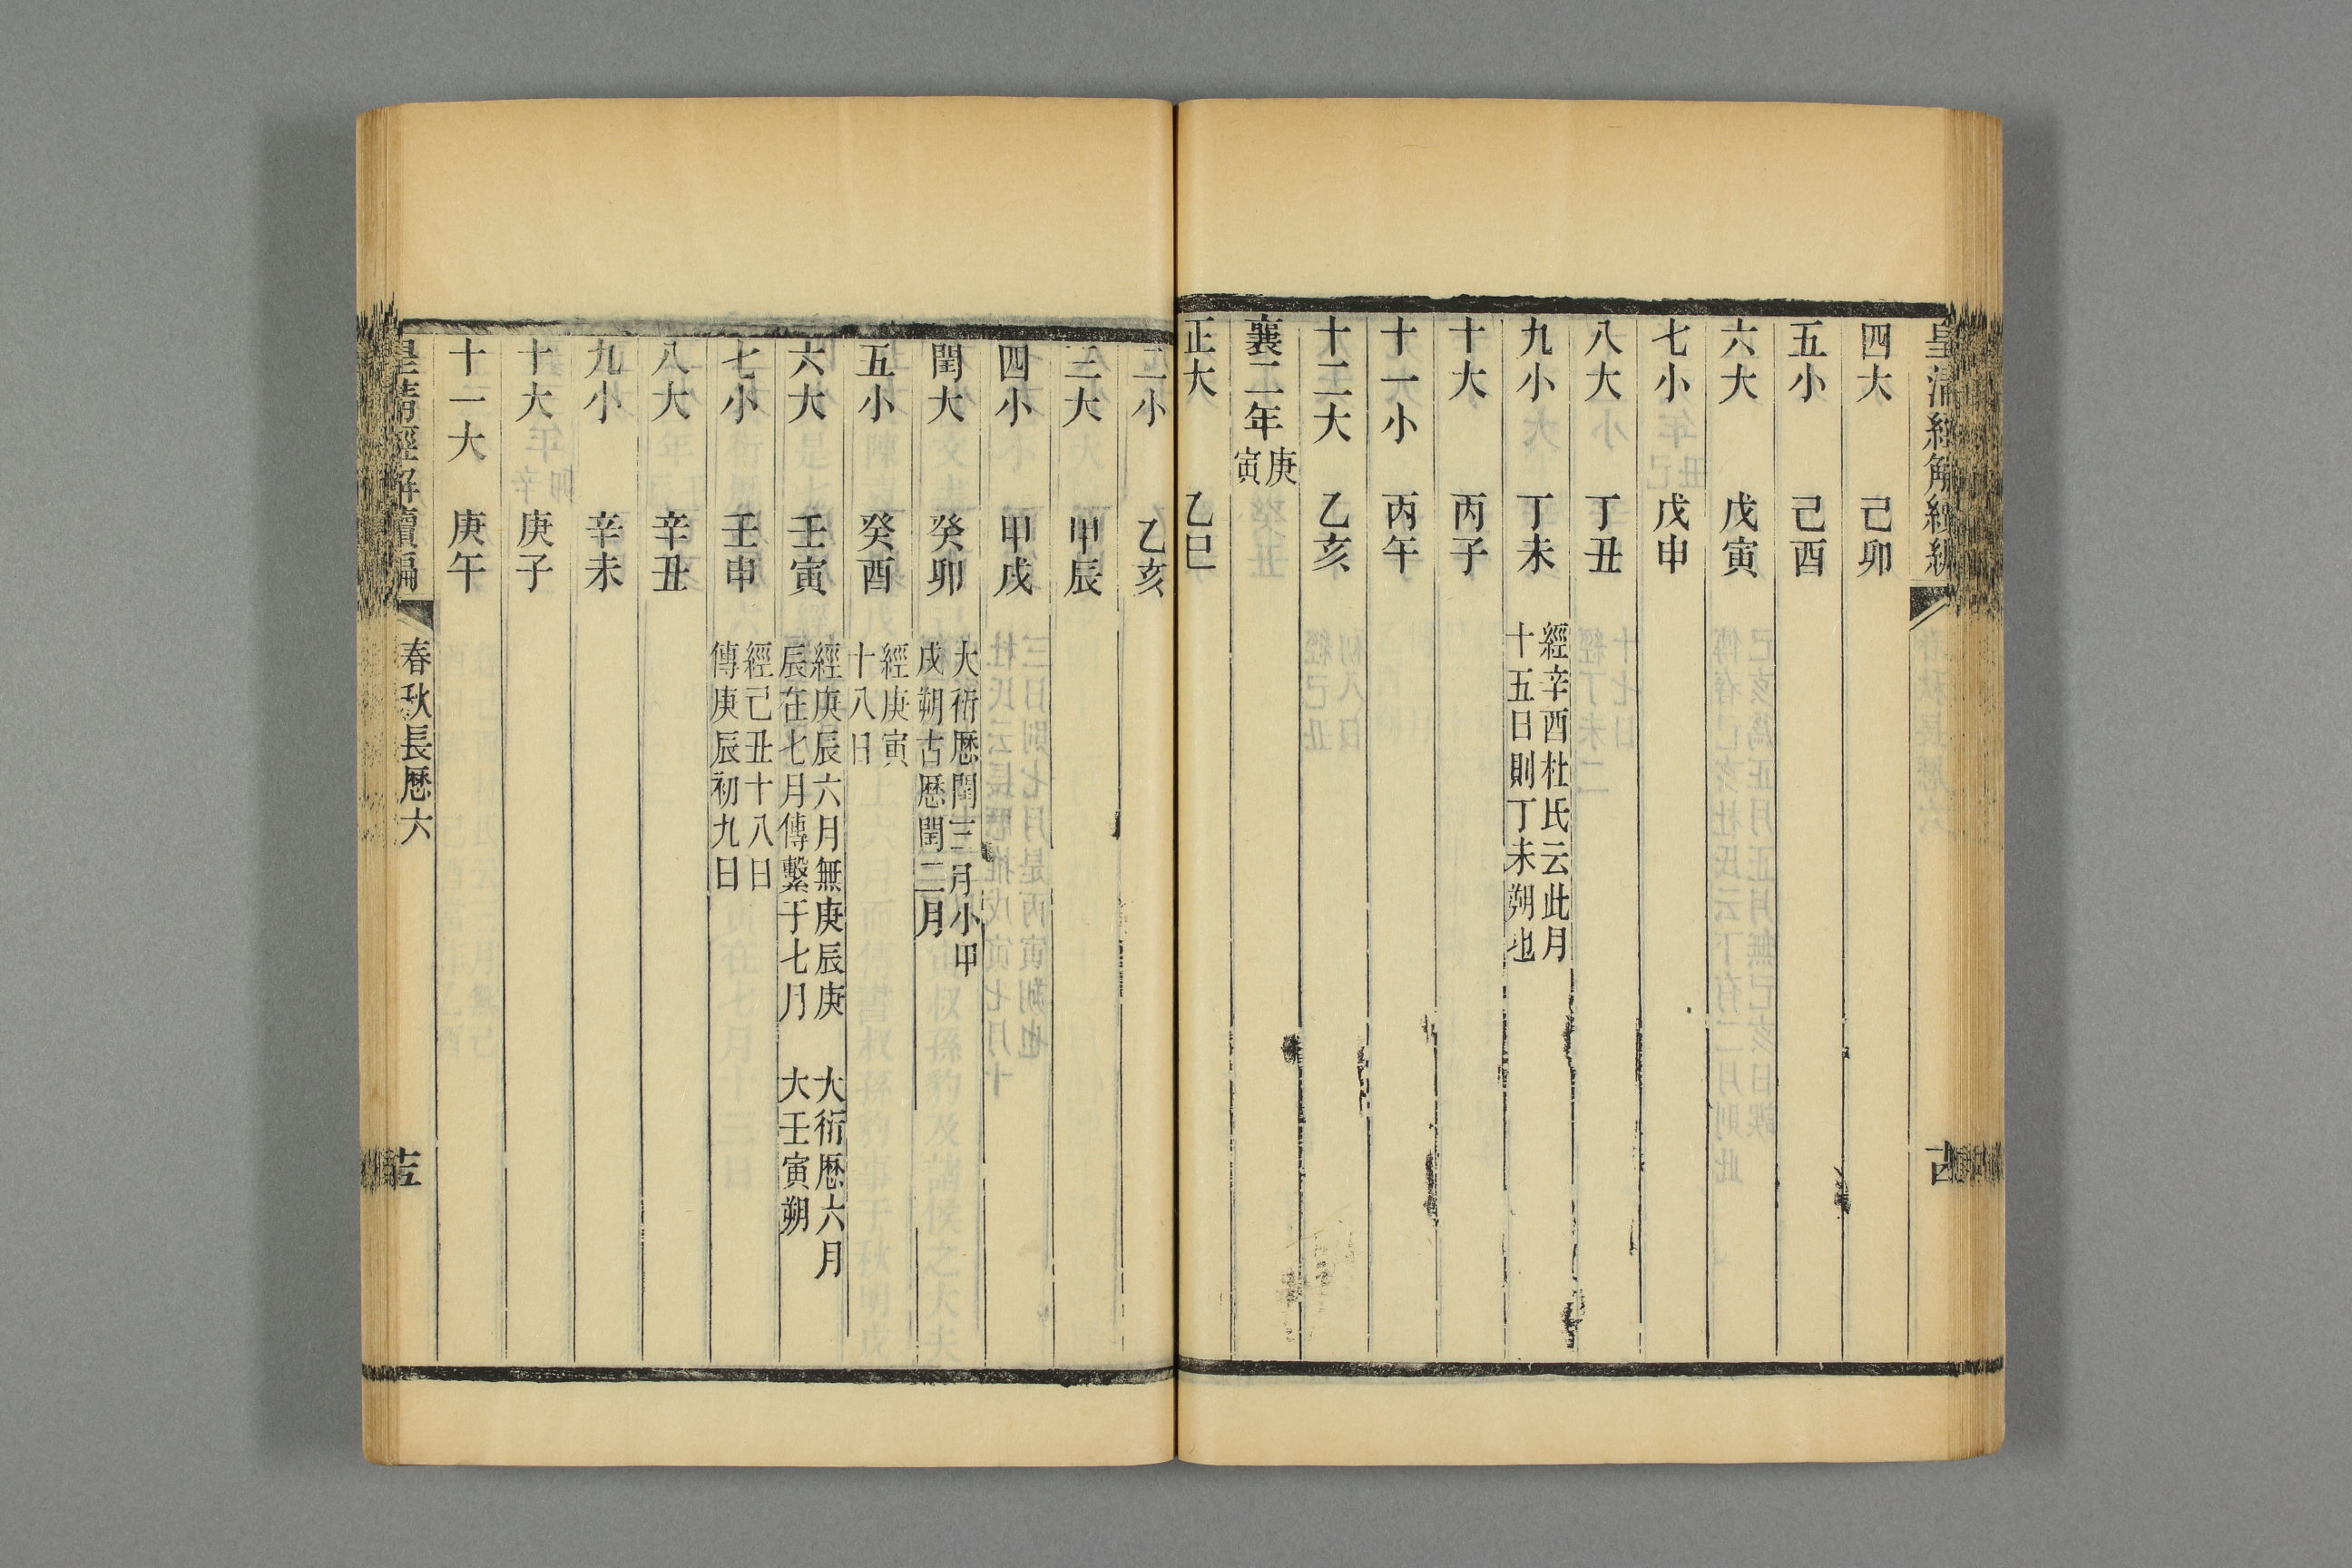 皇清經解續編
四大 己卯
五小 己酉
六大 戊寅
七小 戊申
八大 丁丑
九小 丁未 經辛酉杜氏云此月
十五日則丁未朔也
十大 丙子
十一小 丙午
十二大 乙亥
襄二年庚
寅
正大 乙巳
二小 乙亥
三大 甲辰
四小 甲戌
閏大 癸卯 大衍厯閏三月小甲
戌朔古厯閏二月
五小 癸酉 經庚寅
十八日
六大 壬寅 經庚辰六月無庚辰庚 大衍厯六月
辰在七月傳繫于七月 大壬寅朔
七小 壬申 經己丑十八日
傳庚辰初九日
八大 辛丑
九小 辛未
十大 庚子
十一大 庚午
皇清經解續編 春秋長厯六